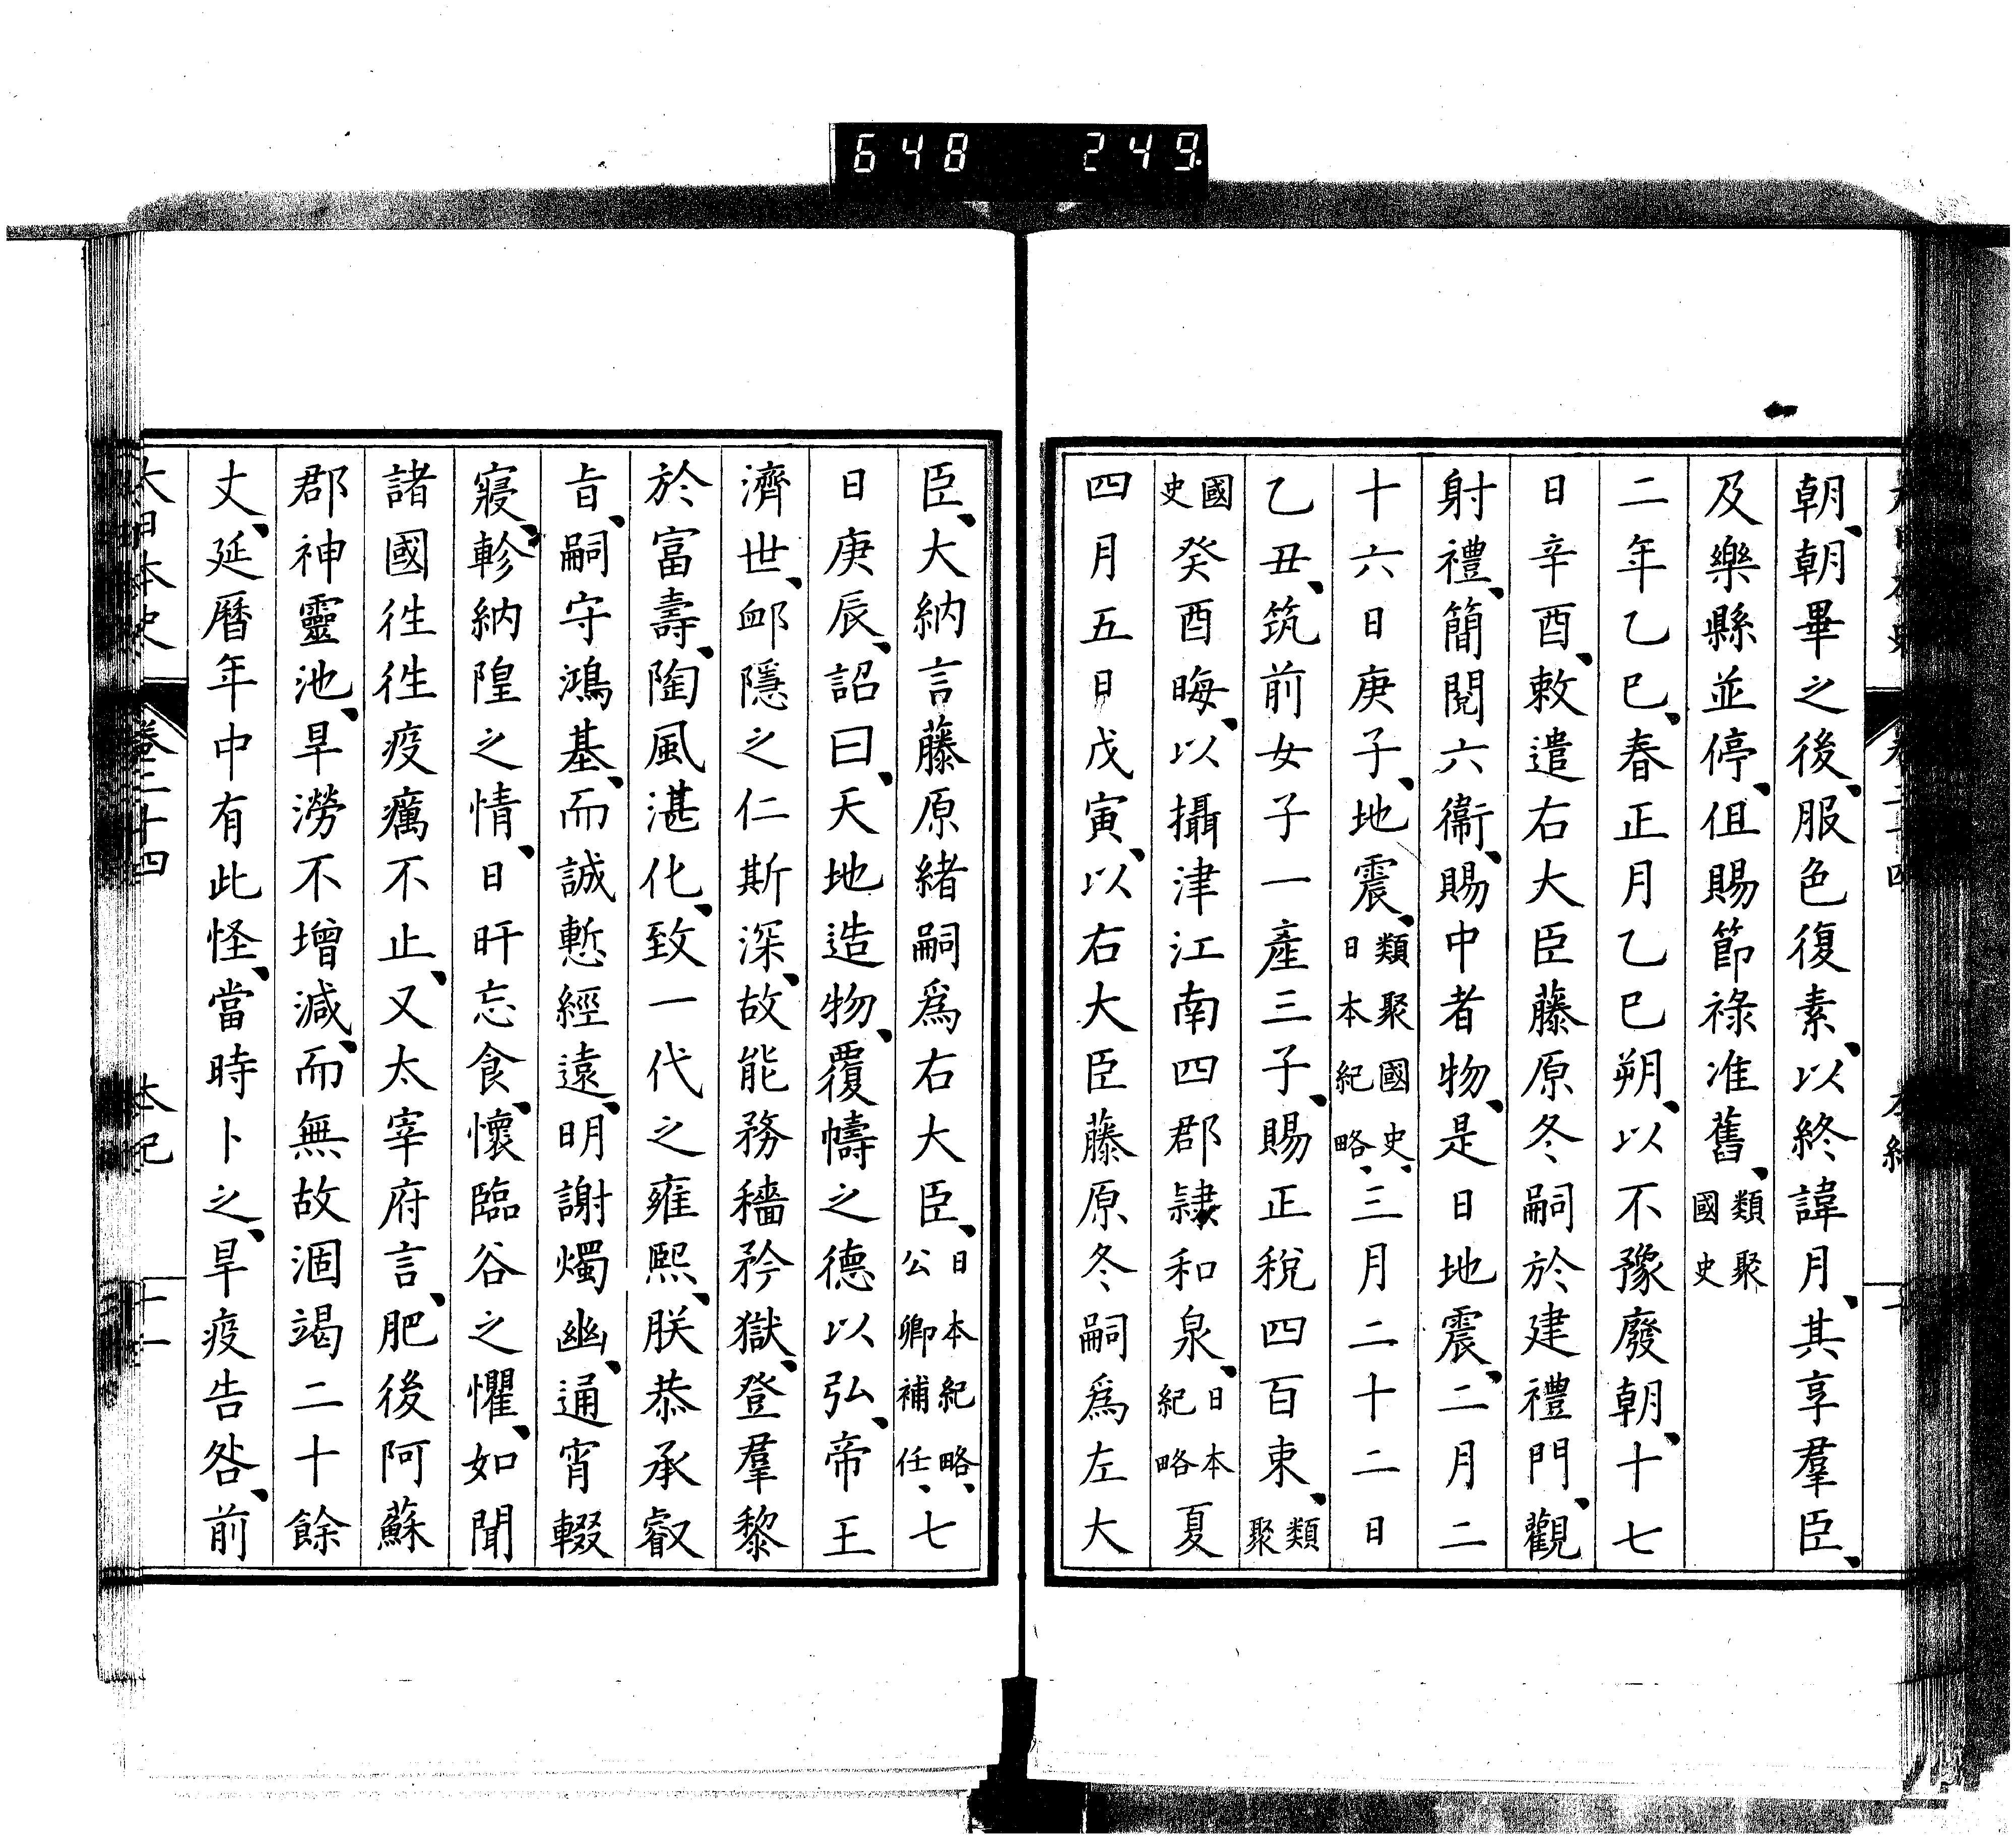 648 249
朝、朝畢之後、服色復素、以終諱月、其享羣臣、
及樂縣並停、但賜節祿准舊、類聚國史
二年乙巳、春正月乙巳朔、以不豫廢朝、十七
日辛酉、敕遣右大臣藤原冬嗣於建禮門、觀
射禮、簡閱六衞、賜中者物、是日地震、二月二
十六日庚子、地震、類聚國史、日本紀略、三月二十二日
乙丑、筑前女子一產三子、賜正稅四百束、類聚
國史癸酉晦、以攝津江南四郡隷和泉、日本紀略夏
四月五日戊寅、以右大臣藤原冬嗣爲左大
臣、大納言藤原緒嗣爲右大臣、日本紀略、公卿補任、七
日庚辰、詔曰、天地造物、覆幬之德以弘、帝王
濟世、卹隱之仁斯深、故能務穡矜獄、登羣黎
於富壽、陶風湛化、致一代之雍熙、朕恭承叡
旨、嗣守鴻基、而誠慙經遠、明謝燭幽、通宵輟
寢、軫納隍之情、日旰忘食、懷臨谷之懼、如聞
諸國徃徃疫癘不止、又太宰府言、肥後阿蘇
郡神靈池、旱澇不增減、而無故涸竭二十餘
丈、延曆年中有此怪、當時卜之、旱疫告咎、前
大日本史 卷二十四 本紀 十一